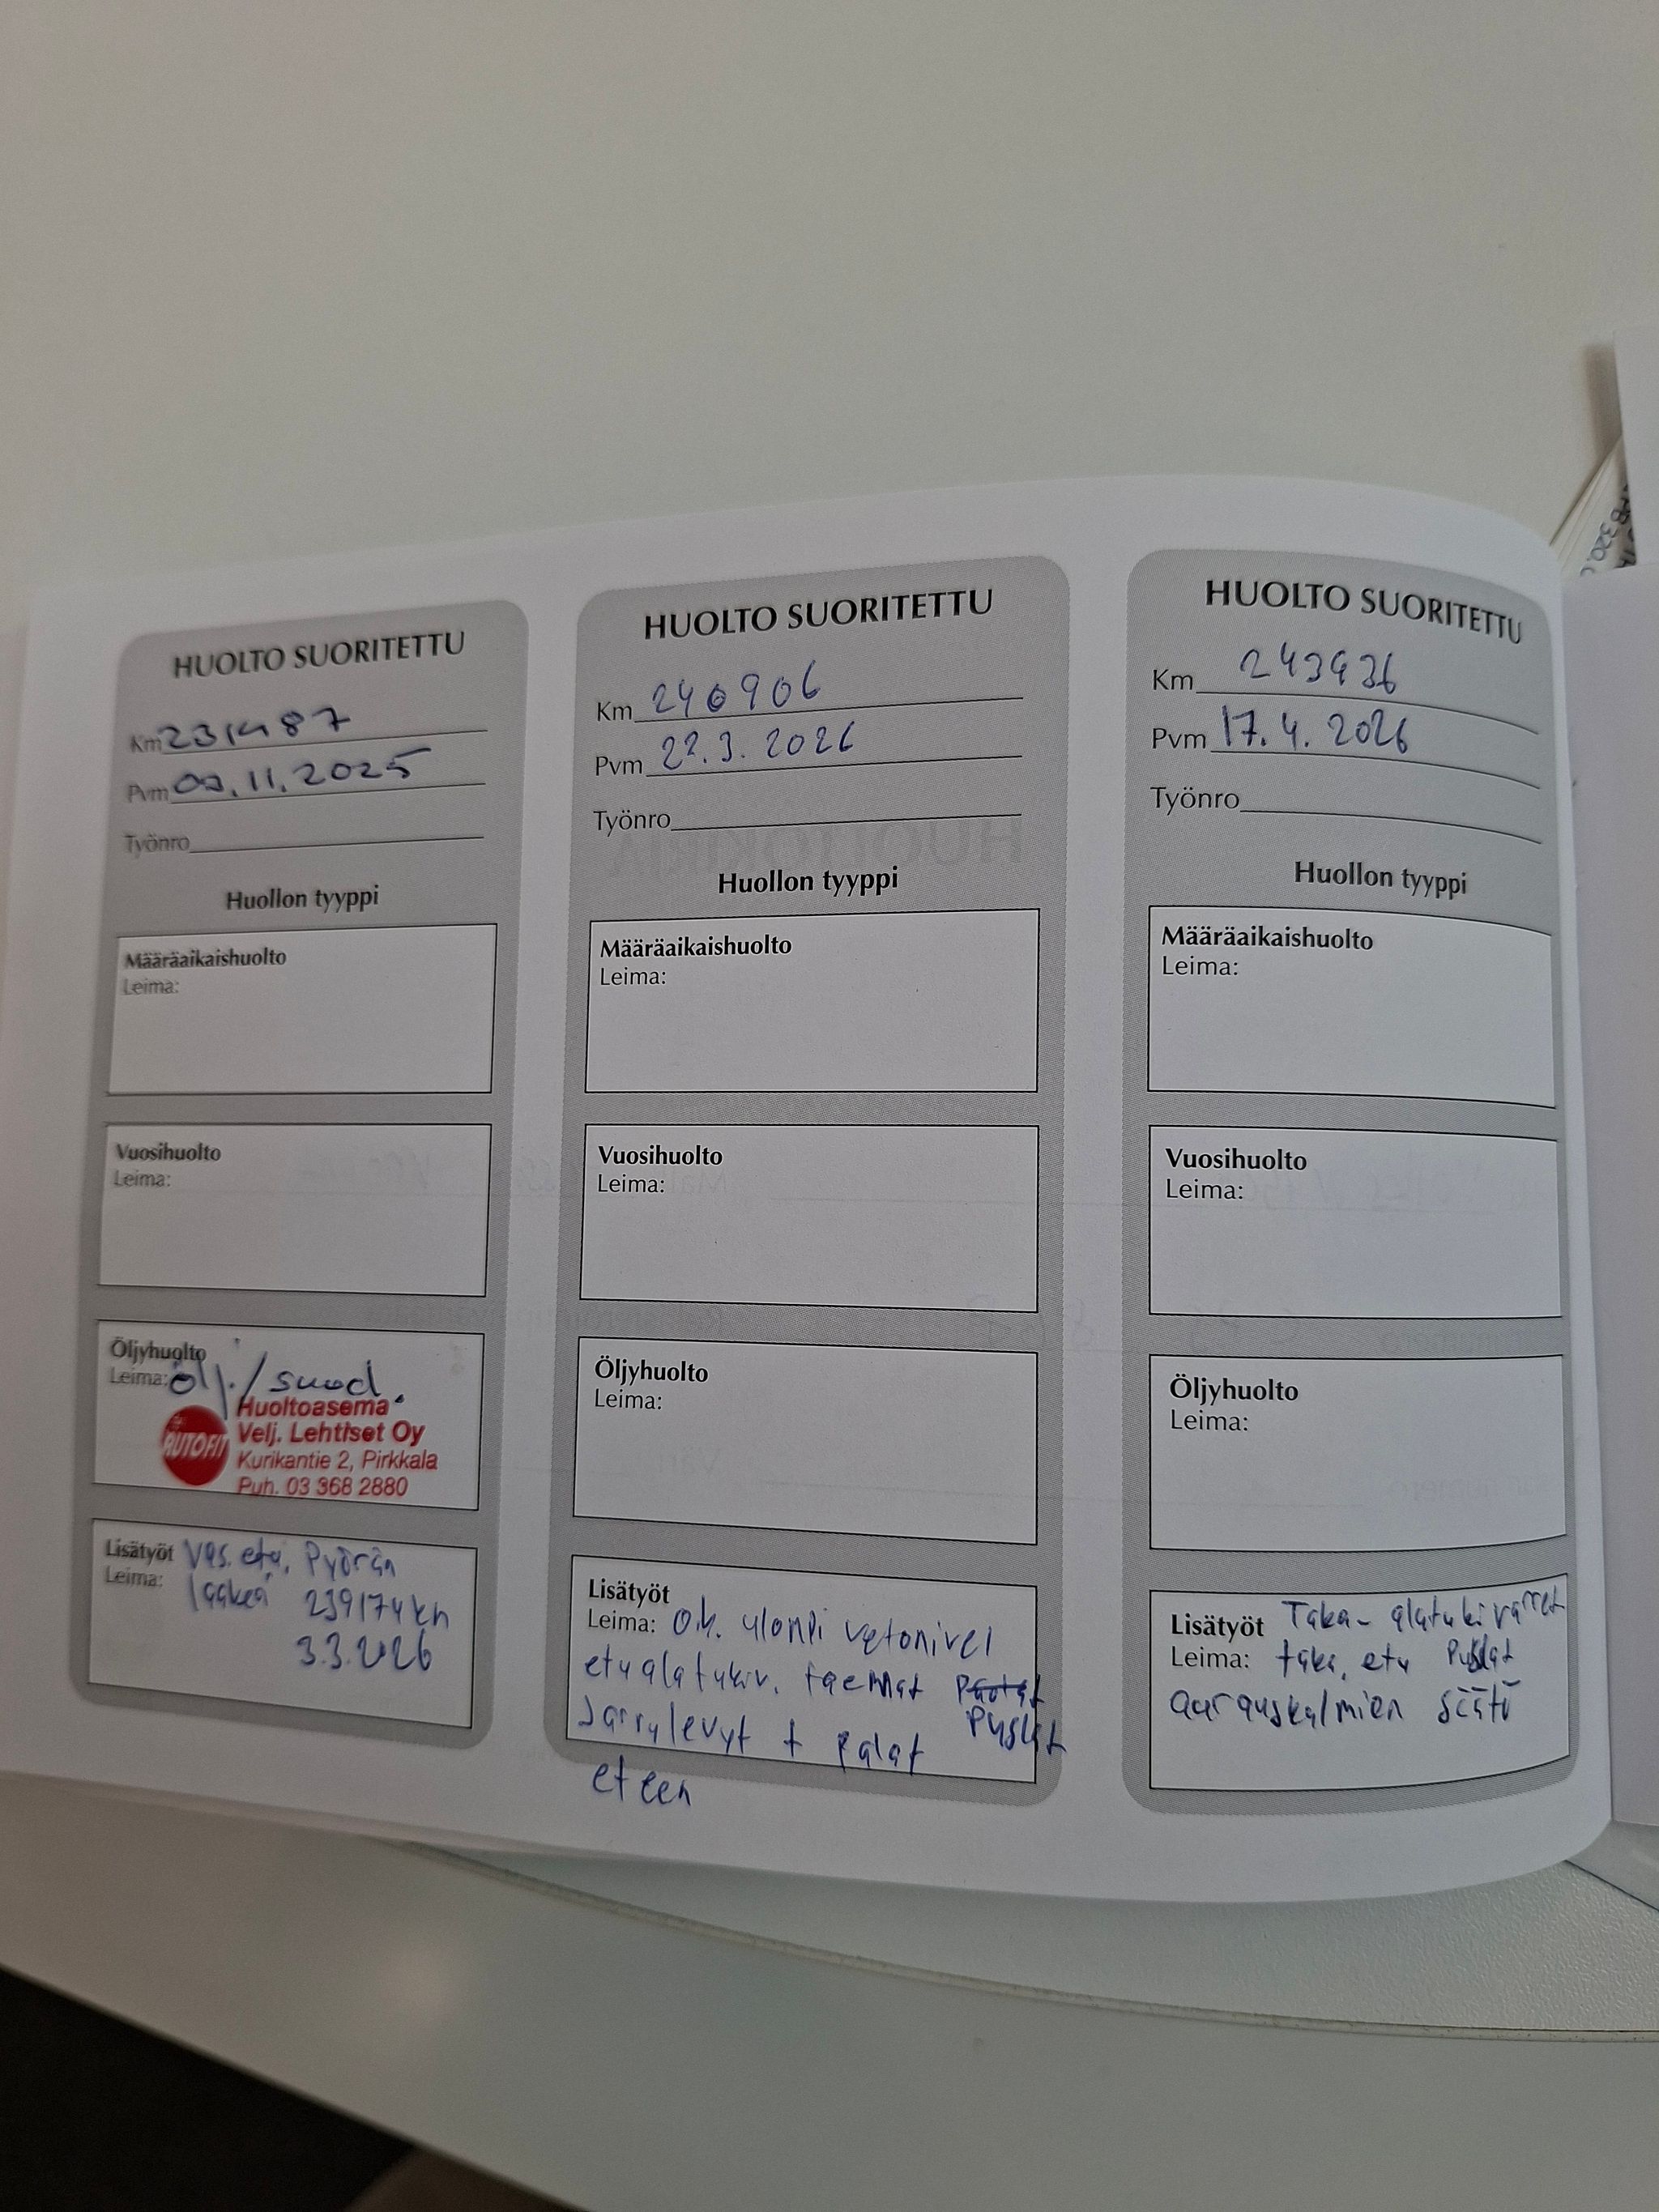 HUOLTO SUORITETTU
Km 231487
Pvm 03.11.2025
Työnro
Huollon tyyppi
Määräaikaishuolto
Leima:
Vuosihuolto
Leima:
Öljyhuolto
Leima: öлj./suod.
AUTOFIT
Huoltoasema
Velj. Lehtiset Oy
Kurikantie 2, Pirkkala
Puh. 03 368 2880
Lisätyöt Vas. etu. Pyörän
Leima: laakeri 239174 km
3.3.2026
HUOLTO SUORITETTU
Km 240906
Pvm 22.3.2026
Työnro
Huollon tyyppi
Määräaikaishuolto
Leima:
Vuosihuolto
Leima:
Öljyhuolto
Leima:
Lisätyöt
Leima: O.k. ulompi vetonivel
etualatukiv. taemmat
Puslat
Jarrulevyt + palat
eteen
HUOLTO SUORITETTU
Km 243936
Pvm 17.4.2026
Työnro
Huollon tyyppi
Määräaikaishuolto
Leima:
Vuosihuolto
Leima:
Öljyhuolto
Leima:
Lisätyöt Taka-alatukivarret
Leima: taka, etu Puslat
aurauskulmien säätö